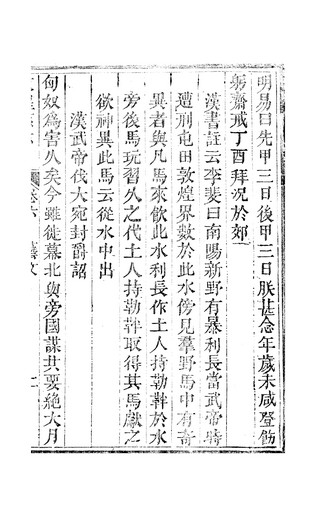 明易曰先甲三日後甲三日朕甚念年歲未咸登飭
躬齋戒丁酉拜況於郊
漢書註云李斐曰南陽新野有暴利長當武帝時
遭刑屯田敦煌界數於此水傍見羣野馬中有奇
異者與凡馬來飲此水利長作土人持勒靽於水
旁後馬玩習久之代土人持勒靽取得其馬獻之
欲神異此馬云從水中出
漢武帝伐大宛封爵詔
匈奴為害久矣今雖徙幕北與旁國謀共要絕大月
卷六
藝文